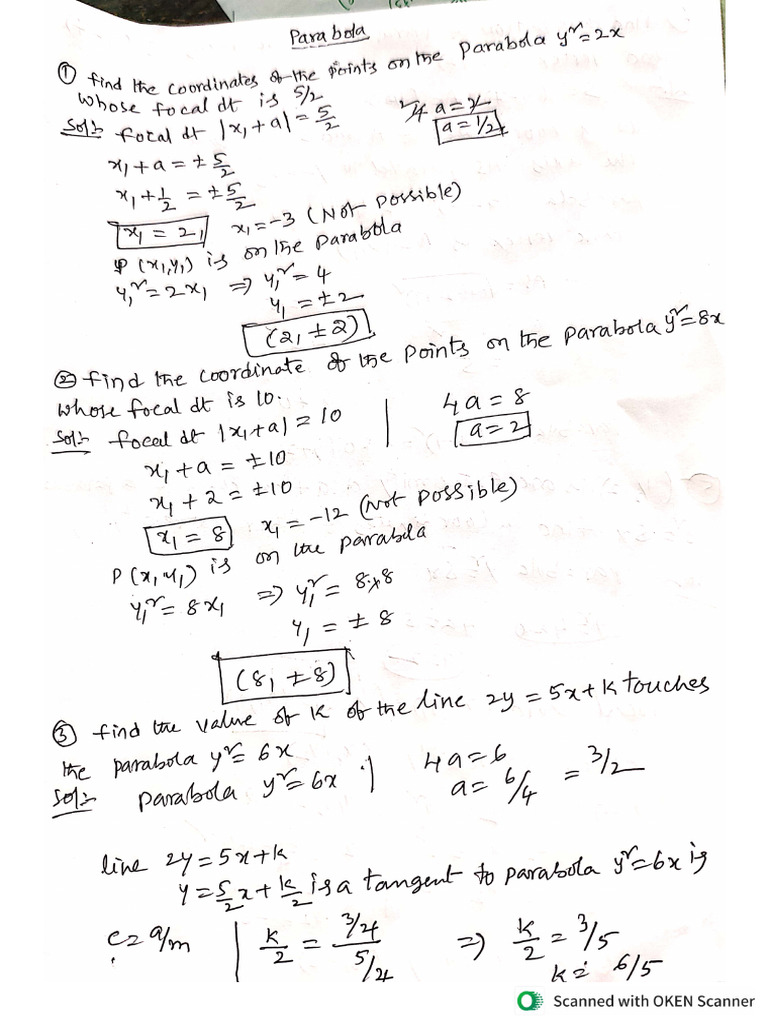 Parabola
① find the coordinates of the points on the parabola y²=2x
whose focal dt is 5/2
Sol:- focal dt |x₁+a|=5/2
2/4 a=2/
a=1/2
x₁+a=±5/2
x₁+1/2=±5/2
x₁=2, x₁=-3 (Not possible)
P(x₁,y₁) is on the parabola
y₁²=2x₁ ⇒ y₁²=4
y₁=±2
(2, ±2)
② find the coordinate of the points on the parabola y²=8x
whose focal dt is 10.
Sol:- focal dt |x₁+a|=10
4a=8
a=2
x₁+a=±10
x₁+2=±10
x₁=8 x₁=-12 (Not possible)
P(x₁,y₁) is on the parabola
y₁²=8x₁ ⇒ y₁²=8×8
y₁=±8
(8, ±8)
③ find the value of k of the line 2y=5x+k touches
the parabola y²=6x
Sol:- parabola y²=6x
4a=6
a=6/4=3/2
line 2y=5x+k
y=5/2x+k/2 is a tangent to parabola y²=6x is
c=a/m | k/2=3/2/5/2 ⇒ k/2=3/5
k=6/5
Scanned with OKEN Scanner